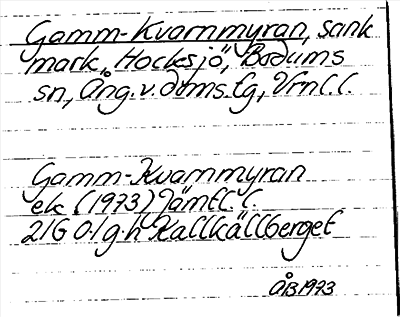 Gamm-Kvarnmyran, sank
mark, "Hocksjö", Bodums
sn, Ång.v.doms.lg, Vrnl.l.
Gamm-Kvarnmyran
ek. (1973) Jämtl.l.
21G 0-1 g-h Kallkällberget
ÅB 1973